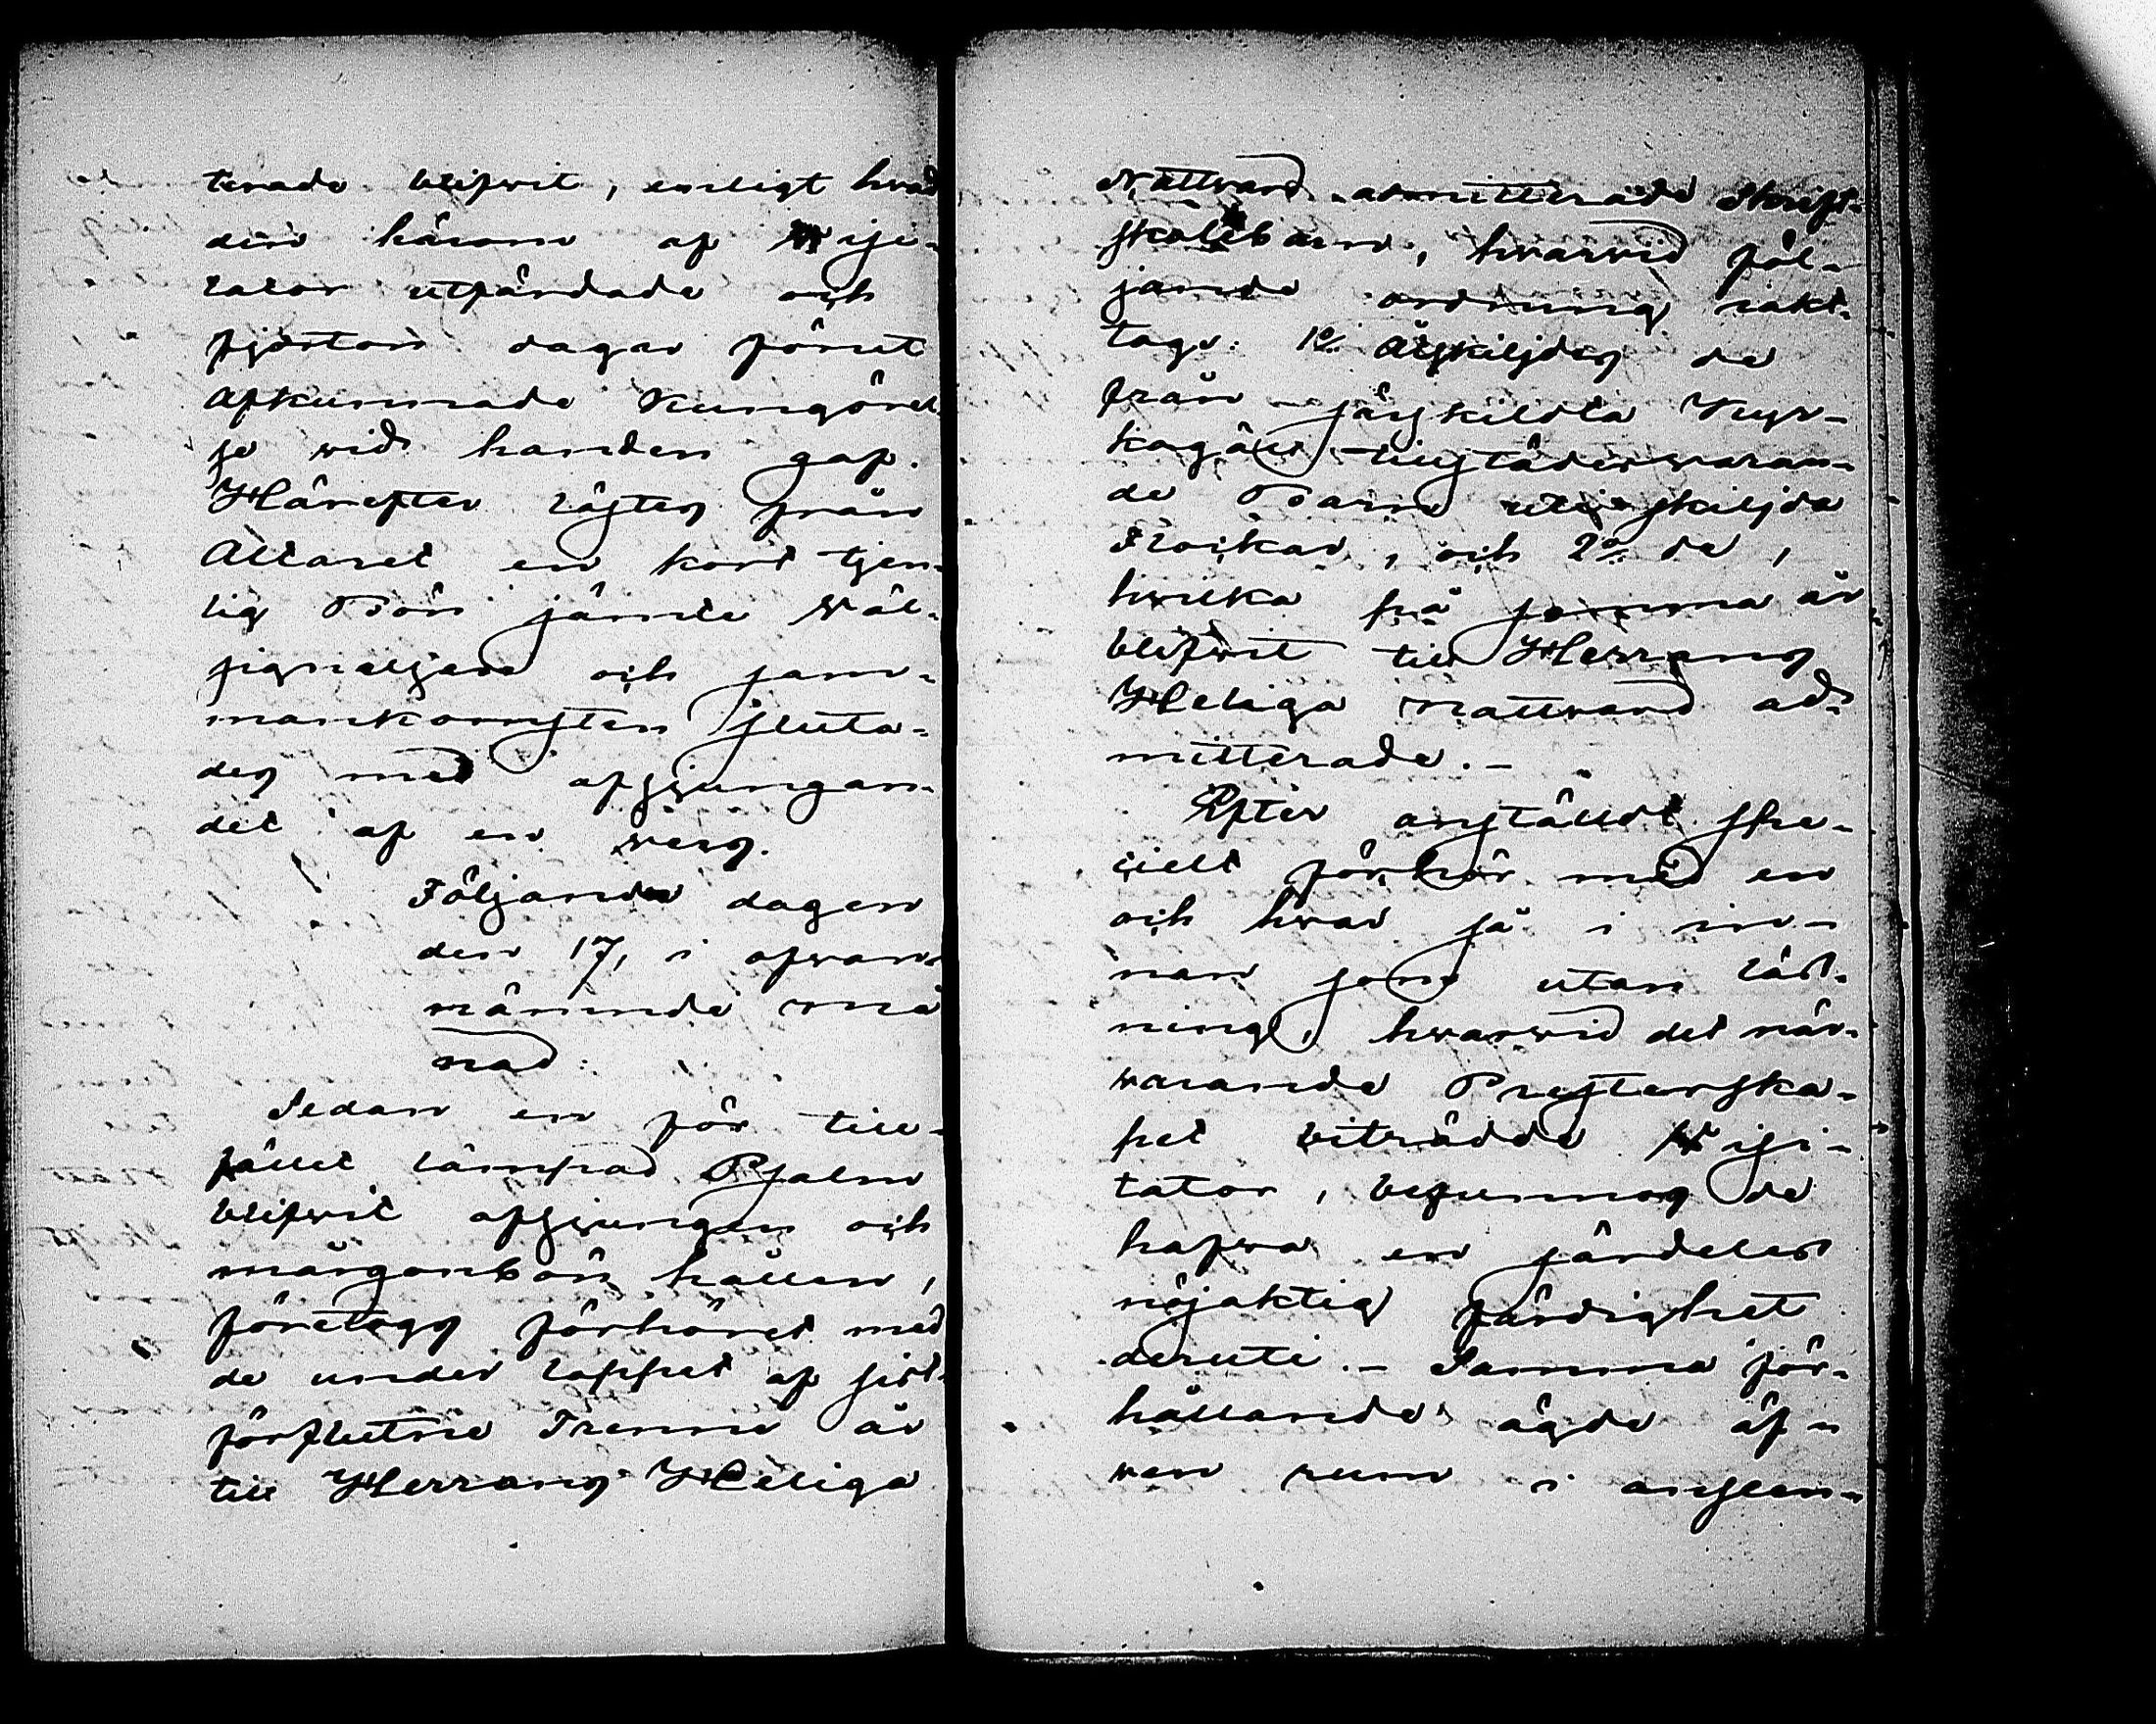 terade blifwit, enligt hwad
den härom af Wisi-
tator utfärdade och
fjorton dagar förut
afkunnade Kungörel-
se wid handen gaf.
Härefter lästes från
Altaret en kort tjen-
lig Bön jämte Wäl-
signelsen och sam-
mankomsten sluta-
des med afsjungan-
det af en vers.
Följande dagen
den 17, i ofwan-
nämnde må
nad:
Sedan en för till-
fället lämpad Psalm
blifwit afsjungen och
morgonbön hållen,
företogs förhöret med
de under loppet af sist-
förflutne Trenne år
till Herrans Heliga
Nattvard admitterade Skrift-
skolebarn, hwarwid föl-
jande ordning iakt-
togs: 1o åtskiljdes de
från särskildta Kyr-
kogåll tillstädeswaran-
de Barn uti skiljda
Flockar, och 2o de,
hwilka på samma år
blifwit till Herrans
Heliga nattward ad-
mitterade.-
Efter anställdt spe-
cielt förhör med en
och hwar så i in-
nan som utan läs-
ning, hwarwid det när-
warande Presterska-
pet biträdde Wisi-
tator, befunnos de
hafwa en särdeles
nöjaktig färdighet
deruti.- Samma för-
hållande ägde äf-
wen rum i anseen-